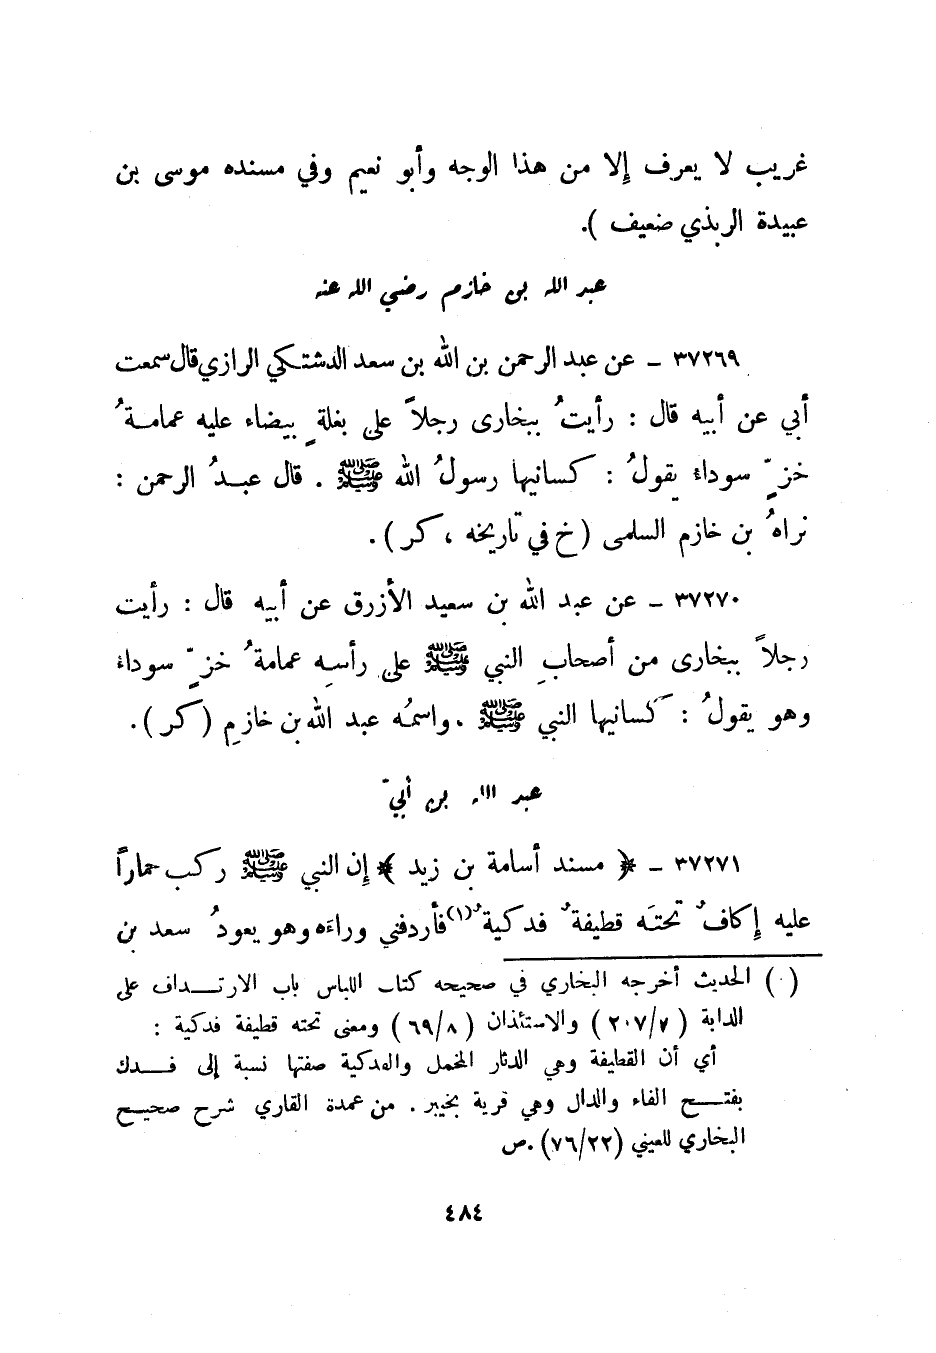 غريب لا يعرف إلا من هذا الوجه وأبو نعيم وفي مسنده موسى بن
عبيدة الربذي ضعيف ).
عبد الله بن خازم رضي الله عنه
٣٧٢٦٩ ــ عن عبد الرحمن بن الله بن سعد الدشتكي الرازي قال سمعت
أبي عن أبيه قال : رأيتُ ببخارى رجلاً على بغلةٍ بيضاء عليه عمامـةُ
خزٍّ سوداء يقولُ : كسانيها رسولُ الله ﷺ . قال عبـدُ الرحمن :
نراهُ بن خازم السلمى ( خ في تاريخه ، كر ) .
٣٧٢٧٠ ــ عن عبد الله بن سعيد الأزرق عن أبيه قال : رأيت
رجلاً ببخارى من أصحابِ النبي ﷺ على رأسِه عمامةُ خزٍّ سوداء
وهو يقولُ : كسانيها النبي ﷺ . واسمُه عبد الله بن خازمِ ( كر ) .
عبد الله بن أبيّ
٣٧٢٧١ ــ ﴿ مسند أسامة بن زيد ﴾ إن النبي ﷺ ركب حماراً
عليه إكافٌ تحتَه قطيفةٌ فدكيةٌ(١) فأردفني وراءَه وهو يعودُ سعد بن
( ٠ ) الحديث أخرجه البخاري في صحيحه كتاب اللباس باب الارتـــداف على
الدابة ( ٢٠٧/٧ ) والاستئذان ( ٦٩/٨ ) ومعنى تحته قطيفة فدكية :
أي أن القطيفة وهي الدثار المخمل والفدكية صفتها نسبة إلى فـــدك
بفتـــح الفاء والدال وهي قرية بخيبر . من عمدة القاري شرح صحيـح
البخاري للعيني (٧٦/٢٢) .ص
٤٨٤